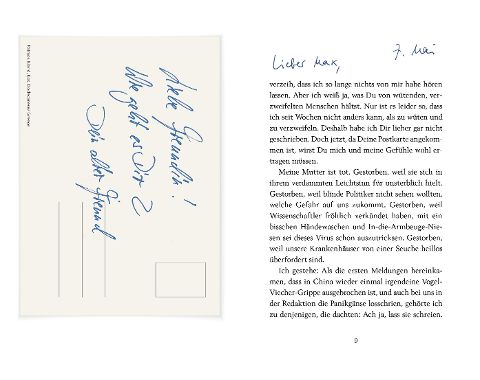 Alte Freundin!
Wie geht es Dir?
Dein alter Freund
Lieber Max,
7. Mai
verzeih, dass ich so lange nichts von mir habe hören
lassen. Aber ich weiß ja, was Du von wütenden, ver-
zweifelten Menschen hältst. Nur ist es leider so, dass
ich seit Wochen nicht anders kann, als zu wüten und
zu verzweifeln. Deshalb habe ich Dir lieber gar nicht
geschrieben. Doch jetzt, da Deine Postkarte angekom-
men ist, wirst Du mich und meine Gefühle wohl er-
tragen müssen.
Meine Mutter ist tot. Gestorben, weil sie sich in
ihrem verdammten Leichtsinn für unsterblich hielt.
Gestorben, weil blinde Politiker nicht sehen wollten,
welche Gefahr auf uns zukommt. Gestorben, weil
Wissenschaftler fröhlich verkündet haben, mit ein
bisschen Händewaschen und In-die-Armbeuge-Nie-
sen sei dieses Virus schon auszutricksen. Gestorben,
weil unsere Krankenhäuser von einer Seuche heillos
überfordert sind.
Ich gestehe: Als die ersten Meldungen hereinka-
men, dass in China wieder einmal irgendeine Vogel-
Viecher-Grippe ausgebrochen ist, und auch bei uns in
der Redaktion die Panikgänse losschrien, gehörte ich
zu denjenigen, die dachten: Ach ja, lass sie schreien.
9